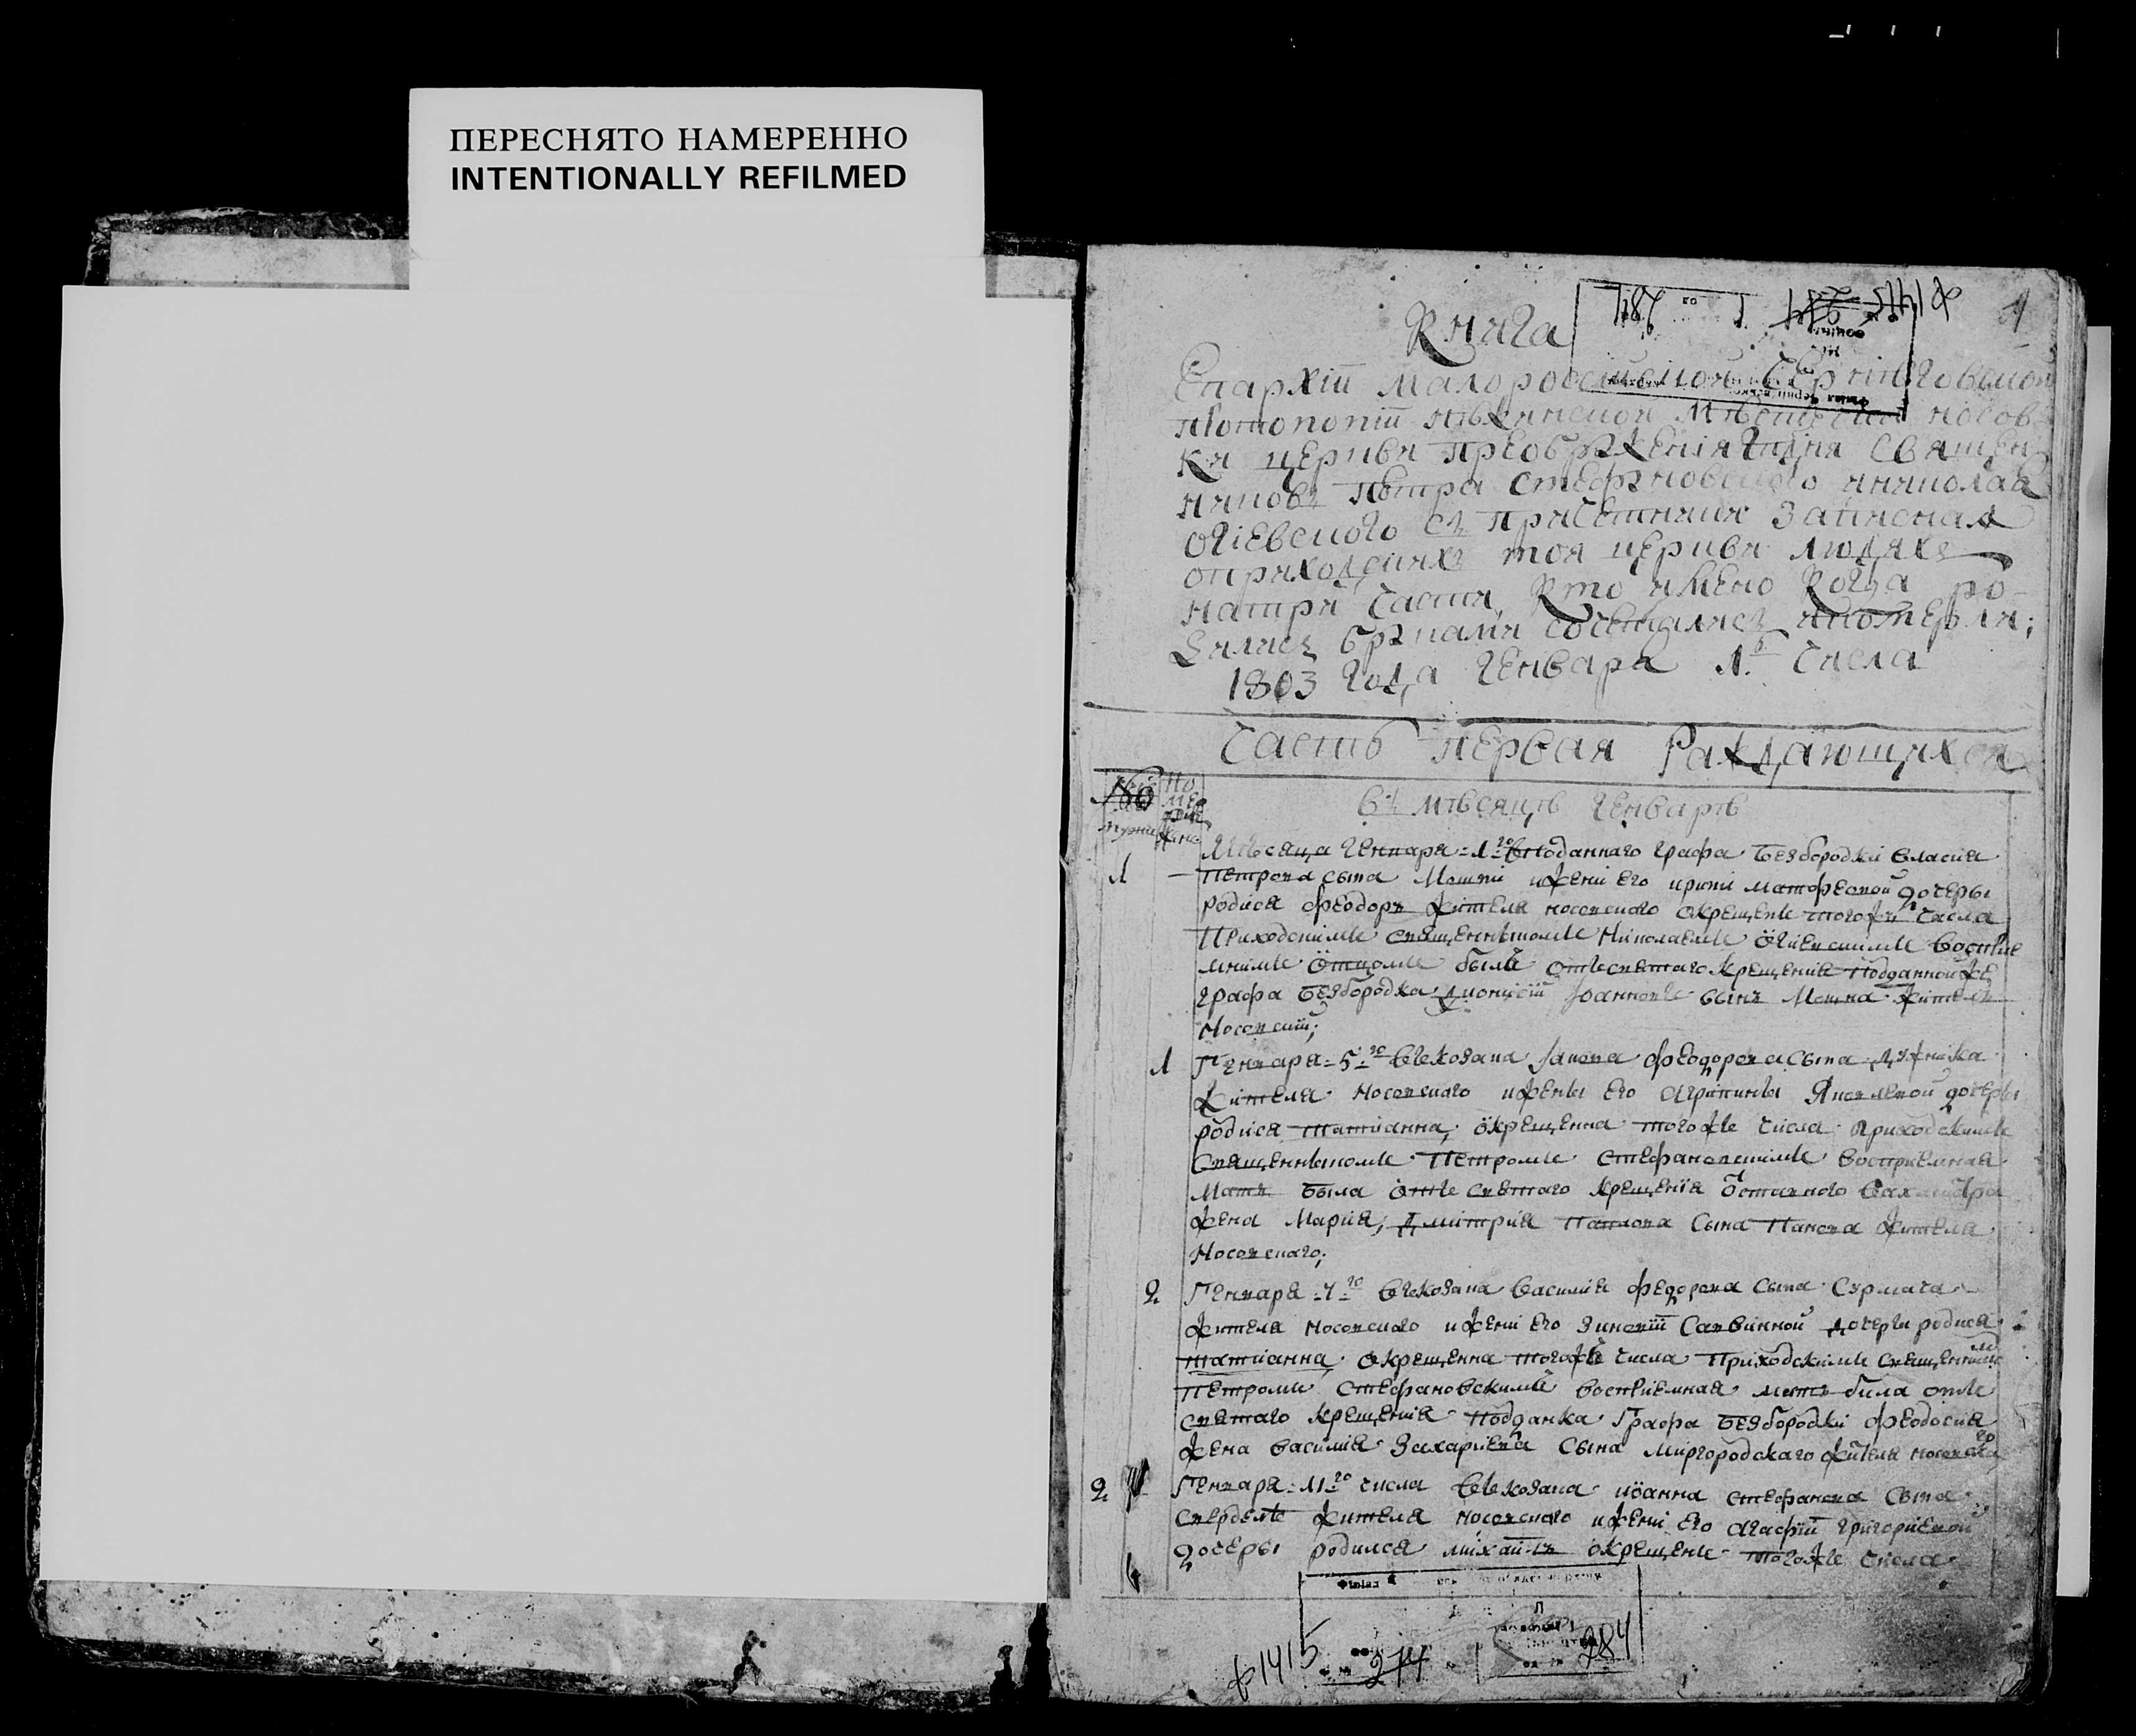 ПЕРЕСНЯТО НАМЕРЕННО
INTENTIONALLY REFILMED
Книга
Епархіи Малоросийской Черниговской
протопопіи нѣженской мѣстечка Носов
ки церкви преображенія Гдня священ
никовъ Петра Стефановского и Николая
Огіевского съ причетники записная
о приходских тоя церкви людяхъ
на три части, кто имено когда ро
дились браками сочеталися и померли;
1803 года Генваря 1. числа
Часть первая Раждающихся
въ мѣсяцѣ Генварѣ
1
Мѣсяца Генваря 1го Вподаннаго графа Безбородки Власия
Петрова сына Мошни и жени его Ирини Матфеевой дочеры
родися Феодоръ жителя носовского окрещенъ того ж числа
Приходскимъ священникомъ Николаемъ Огиевскимъ восприе
мнимъ Отцомъ былъ отъ святаго крещения подданной же
графа Безбородка Дионисий Иоанновъ сынъ Мошна житель
Носовский;
1
Генваря 5го Въ козака Иакова Феодорова сына
жителя Носовского и жены его Агрипины Яковлевой дочеры
родися Татианна, окрещенна того же числа Приходскимъ
Священникомъ Петромъ Стефановскимъ восприемная
Мать была отъ святаго крещения отставного Вахмистра
жена Мария, Дмитрия Павлова сына Панова жителя
Носовского;
2
Генваря 7го Въ козака Василия Федорова сына Сурмача
жителя Носовского и жени его Зиновии Саввинной дочеры родися
Татианна окрещенна того же числа Приходскимъ священником
Петромъ Стефановскимъ восприемная мать била отъ
святаго крещения подданка Графа Безбородки Феодосия
жена Василия Захариева сына Миргородскаго жителя носовского
2
Генваря 11го числа Въ козака Иоанна Стефанова сына
жителя носовского и жени его Агафии Григориевой
дочеры родился Михаилъ окрещенъ того же числа
ф 1415
284